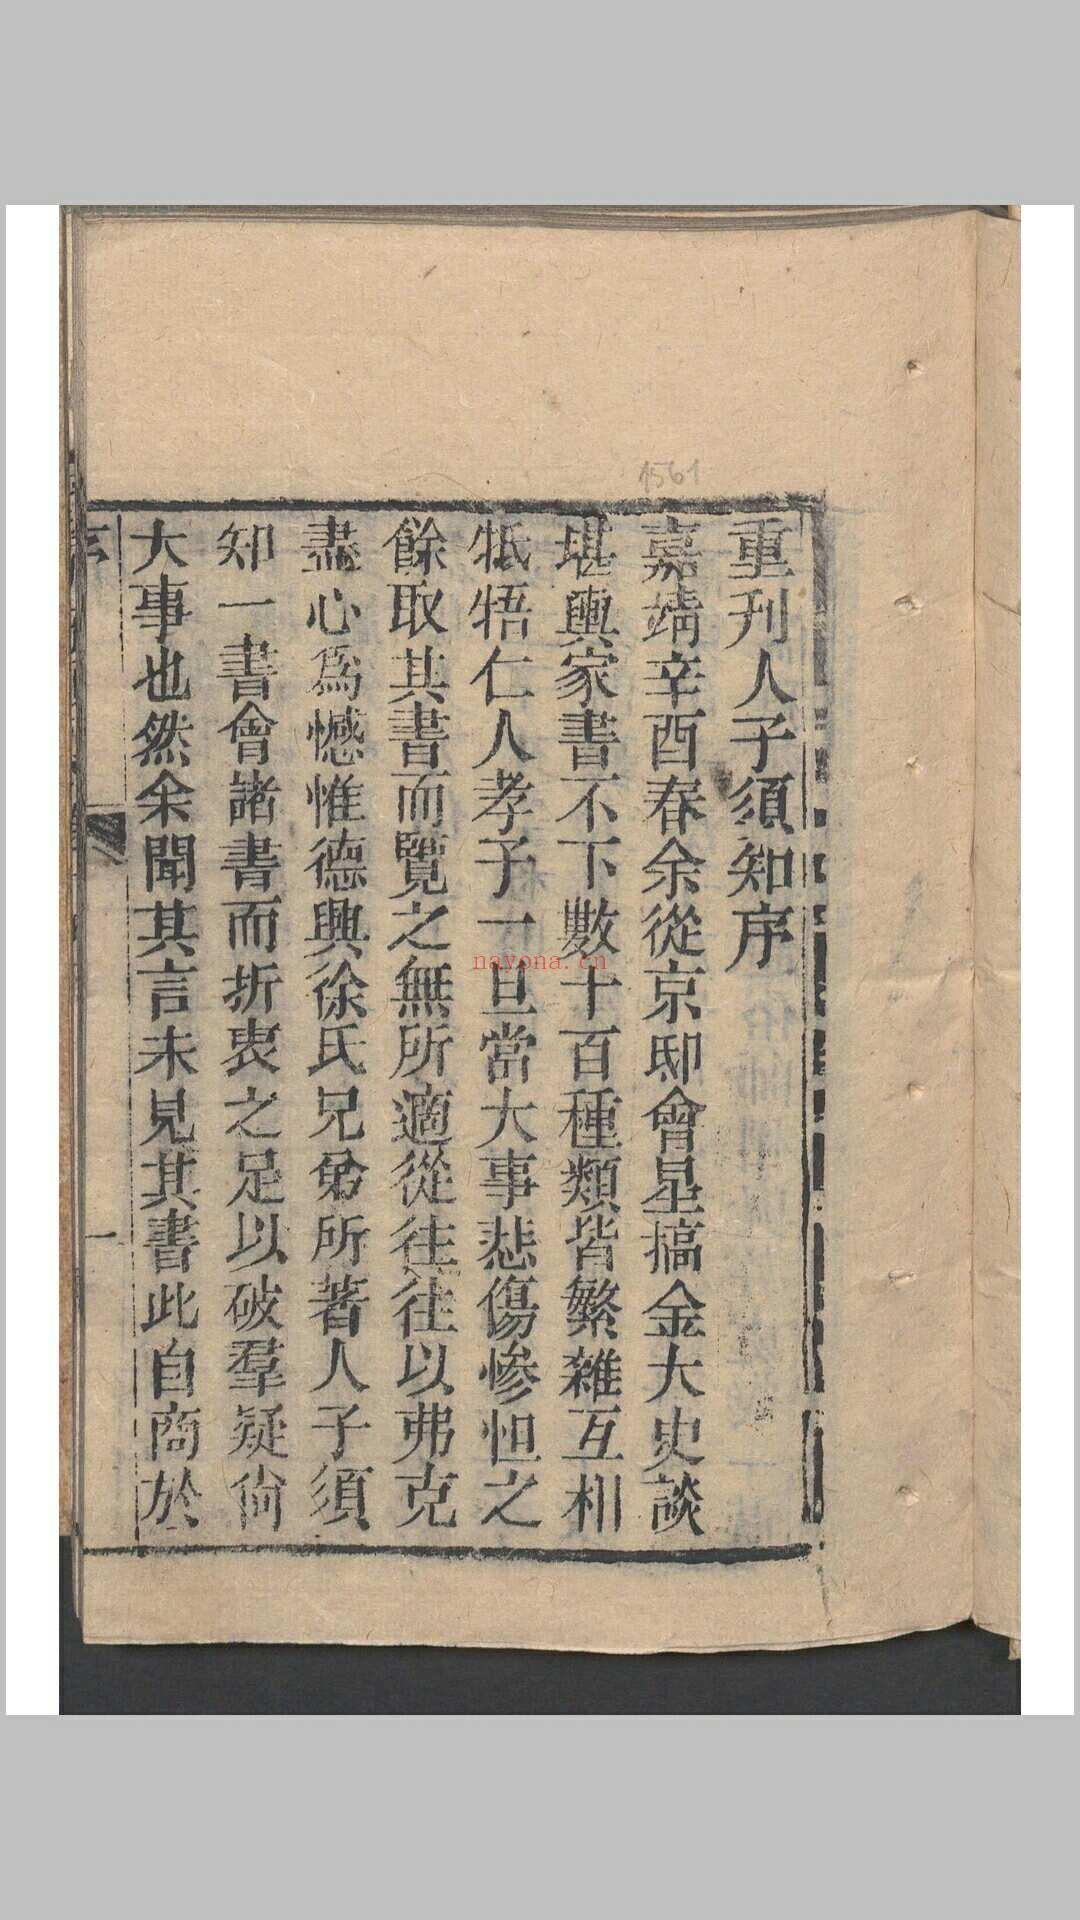 1561
重刋人子須知序
嘉靖辛酉春余從京邸會星搞金大史談
堪輿家書不下數十百種類皆繁雜互相
牴牾仁人孝子一旦當大事悲傷慘怛之
餘取其書而覽之無所適從往往以弗克
盡心爲憾惟德興徐氏兄弟所著人子須
知一書會諸書而折衷之足以破羣疑尙
大事也然余聞其言未見其書此自商於
一
nayona.cn